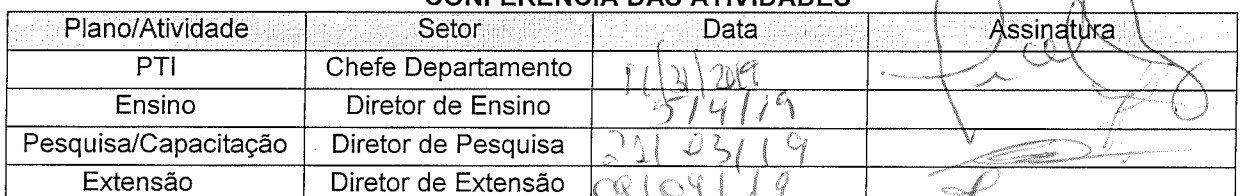 CONFERÊNCIA DAS ATIVIDADES
Plano/Atividade Setor Data Assinatura
PTI Chefe Departamento
Ensino Diretor de Ensino 5/4/19
Pesquisa/Capacitação Diretor de Pesquisa 22/03/19
Extensão Diretor de Extensão 08/04/19